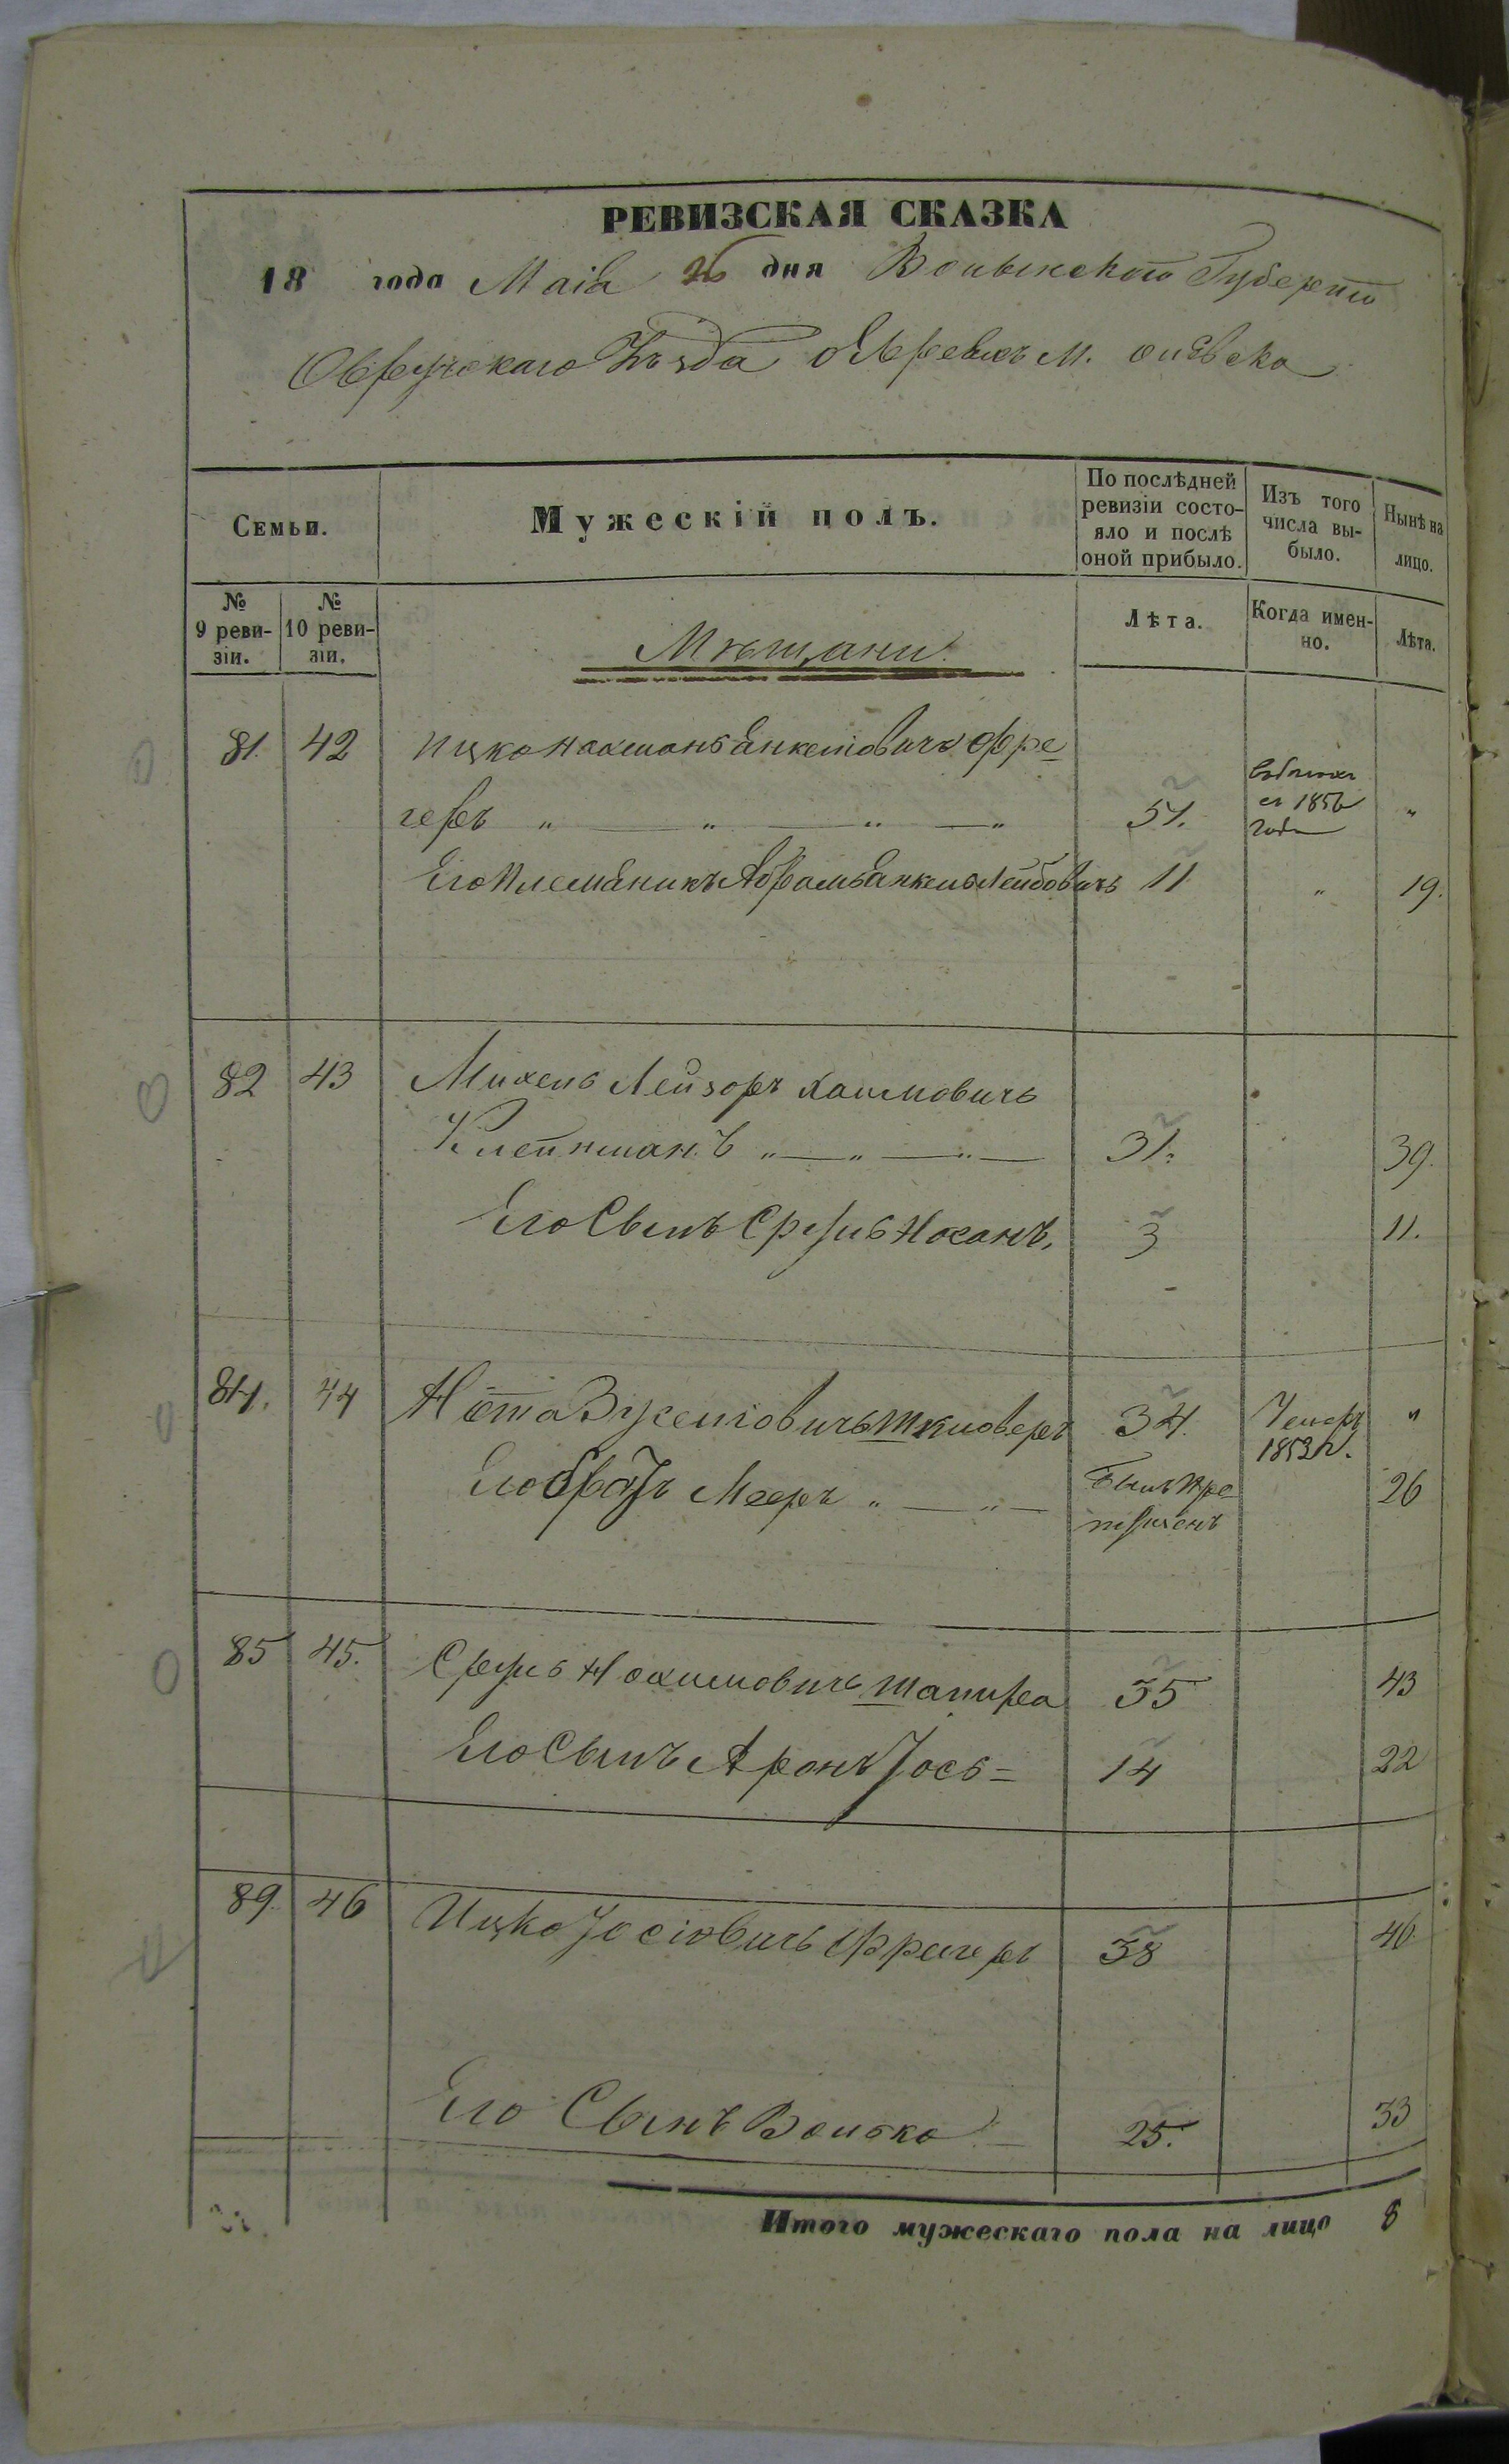 РЕВИЗСКАЯ СКАЗКА
18 года Маія 26 дня Волынской Губерніи
Овручскаго Уѣзда о Евреяхъ м. Олевска
Семьи.
Мужескій полъ.
По послѣдней ревизіи состо-
яло и послѣ
оной прибыло.
Изъ того
числа вы-
было.
Нынѣ на
лицо.
№
9 реви-
зіи.
№
10 реви-
зіи.
Мѣщани
Лѣта.
Когда имен-
но.
Лѣта.
81. 42 Ицко Нахманъ Янкелювичъ Фре
геръ " — " — " — " 51. въ 1856 года "
Его Племяникъ Абрамъ Янкель Лейбовичъ 11 " 19.
82 43 Михель Лейзоръ Хаимовичъ
Клейнманъ " — " — " — 31. 39.
Его Сынъ Сруль Носанъ. 3 11.
84. 44 Нота Зуселіовичъ Шкловеръ 34. Умеръ "
1853 г.
Его братъ Мееръ " — " — былъ пре 26
пущенъ
85 45. Сруль Нохимовичъ Шапира 35 43
Его Сынъ Аронъ Іось = 14 22
89. 46 Ицко Іосіовичъ Фрегеръ 38 46
Его Сынъ Волько 25. 33
Итого мужескаго пола на лицо 8